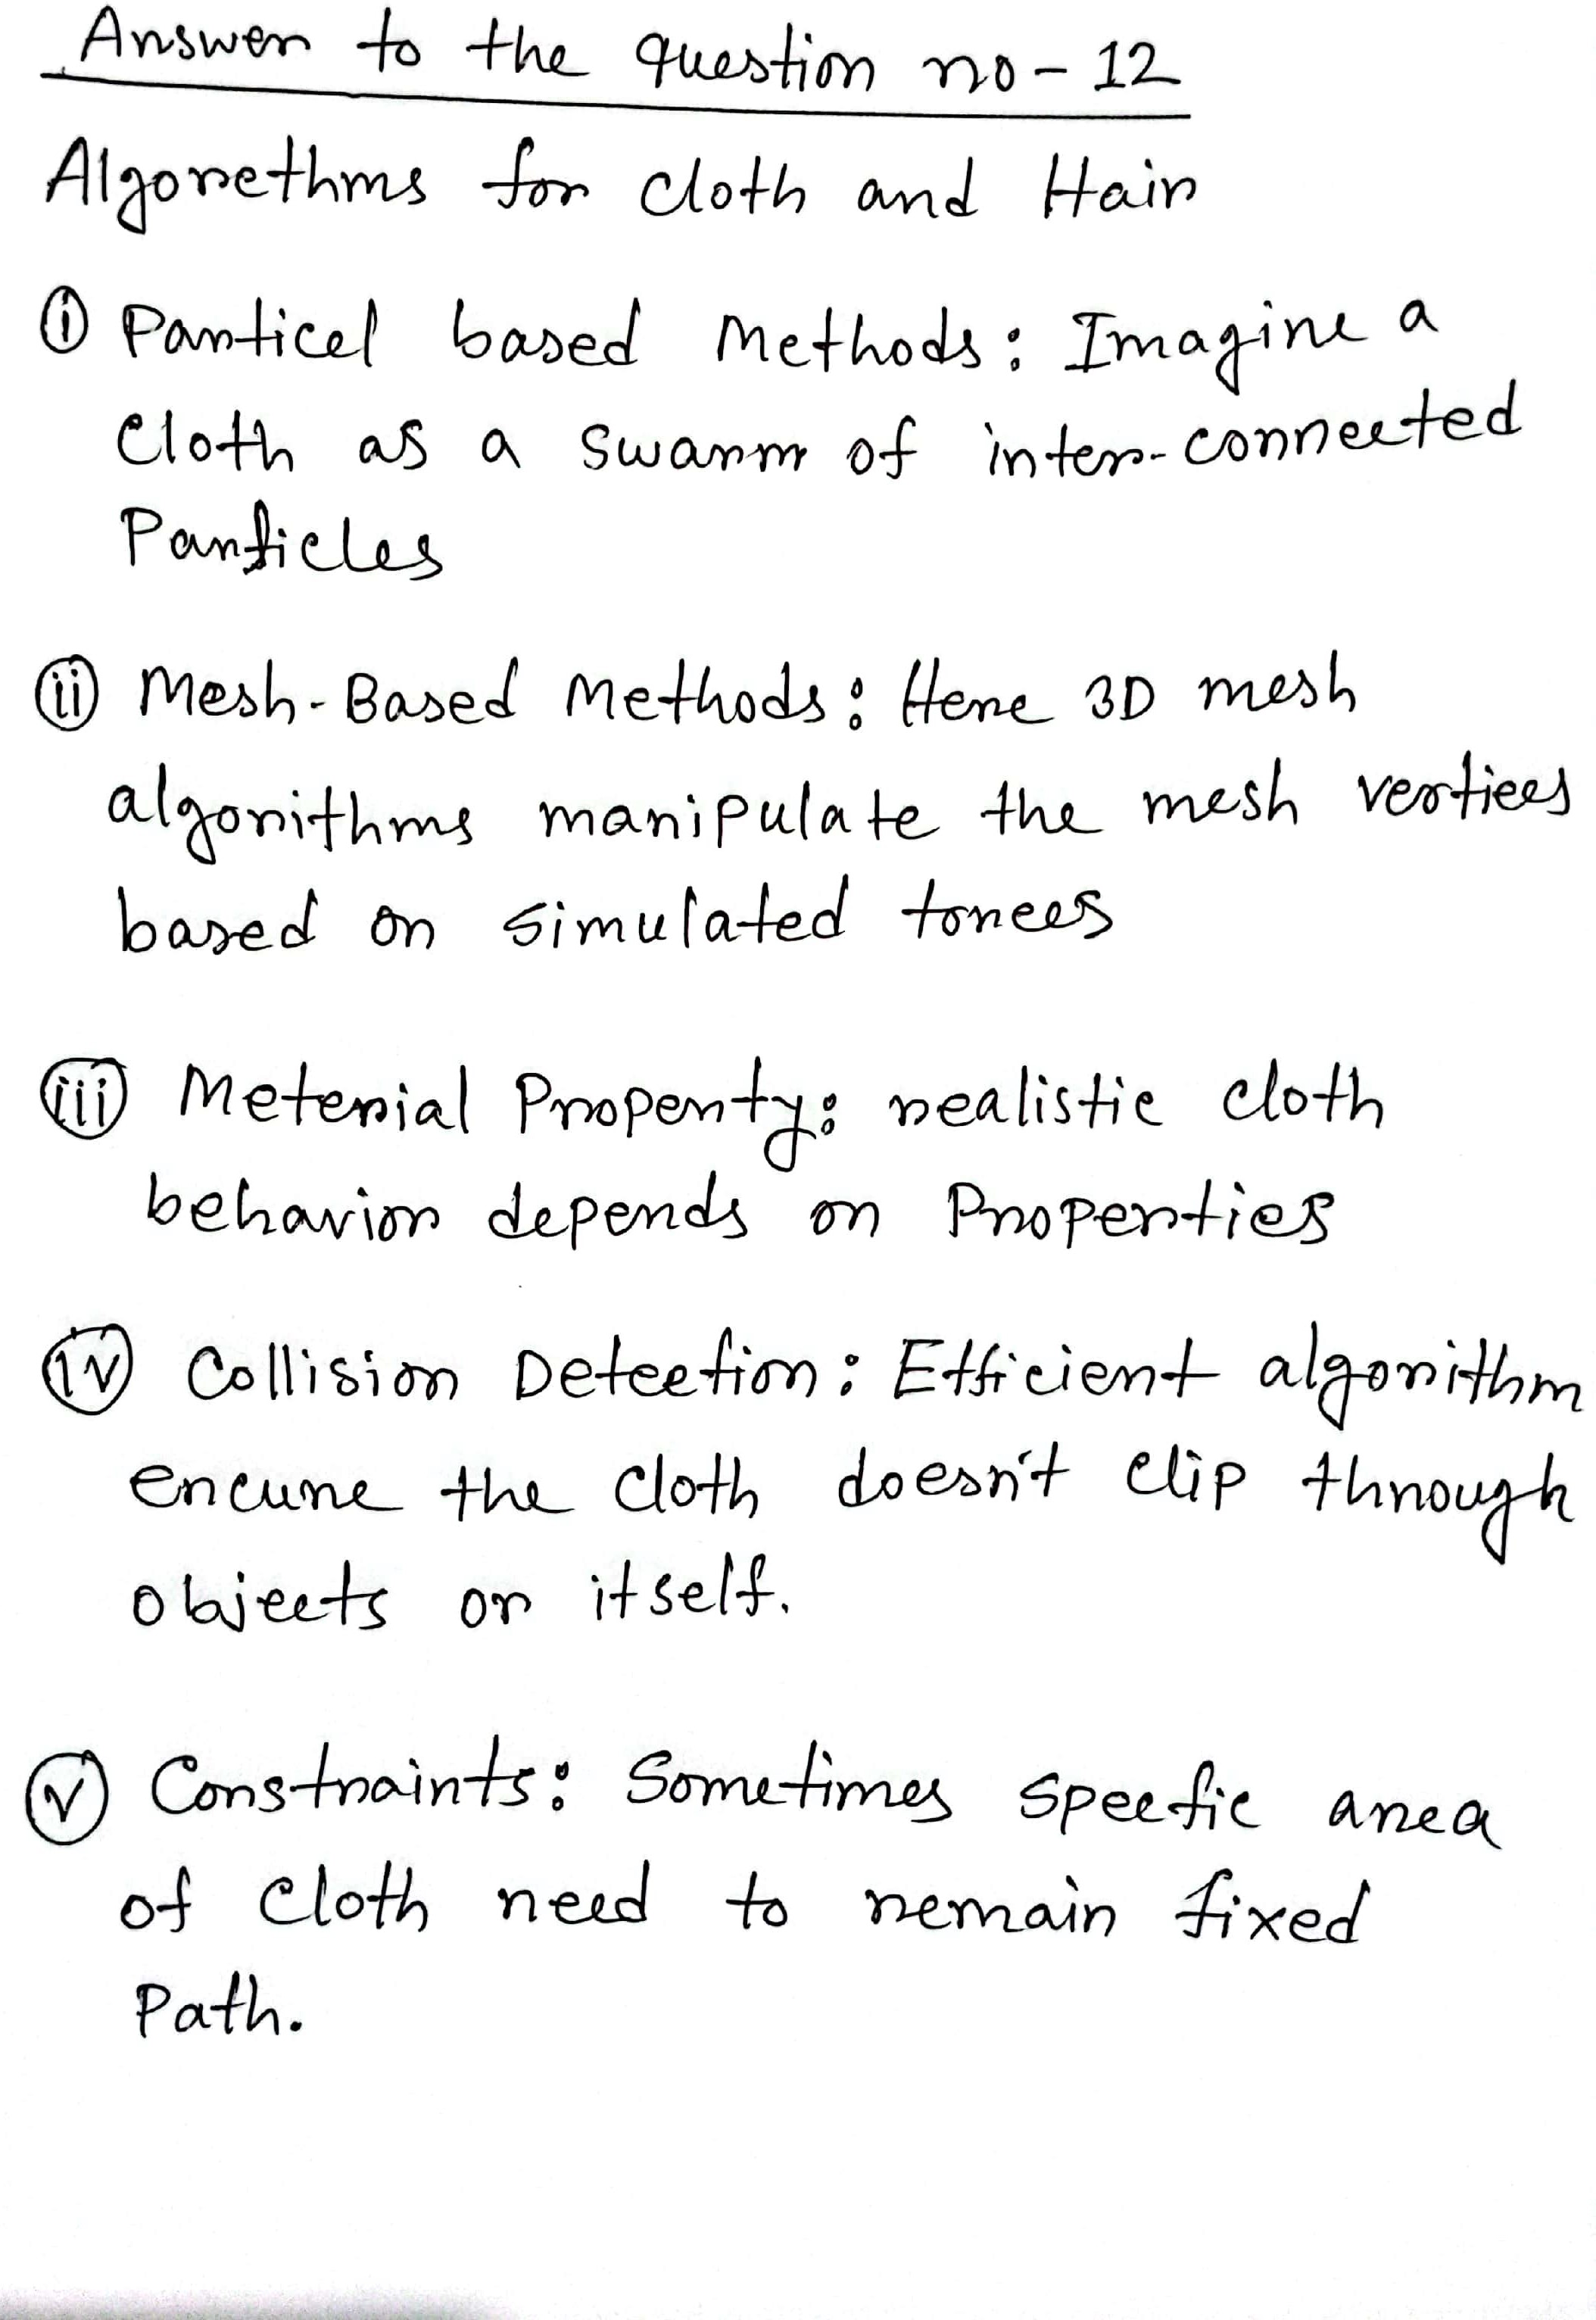 Answer to the question no - 12
Algorethms for cloth and Hair
(i) Particel based Methods: Imagine a
cloth as a swarm of inter-connected
Particles
(ii) Mesh-Based Methods: Here 3D mesh
algorithms manipulate the mesh vertices
based on simulated forces
(iii) Meterial Property: realistic cloth
behavior depends on Properties
(iv) Collision Detection: Efficient algorithm
encure the cloth doesn't clip through
objects or itself.
(v) Constraints: Sometimes specfic area
of cloth need to remain fixed
Path.